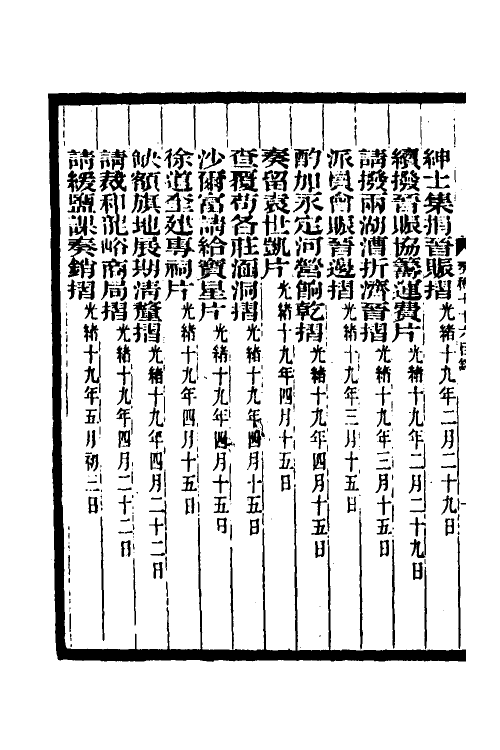 紳士集捐晉賑摺光緒十九年二月二十九日
續撥晉賑協籌運費片光緒十九年二月二十九日
請撥兩湖漕折濟晉摺光緒十九年三月十五日
派員會賑晉邊摺光緒十九年三月十五日
酌加永定河營餉乾摺光緒十九年四月十五日
奏留袁世凱片光緒十九年四月十五日
查覆茆各莊涵洞摺光緒十九年四月十五日
沙爾富請給寶星片光緒十九年四月十五日
徐道奎建專祠片光緒十九年四月十五日
缺額旗地展期清釐摺光緒十九年四月二十二日
請裁和龍峪商局摺光緒十九年四月二十二日
請緩鹽課奏銷摺光緒十九年五月初三日